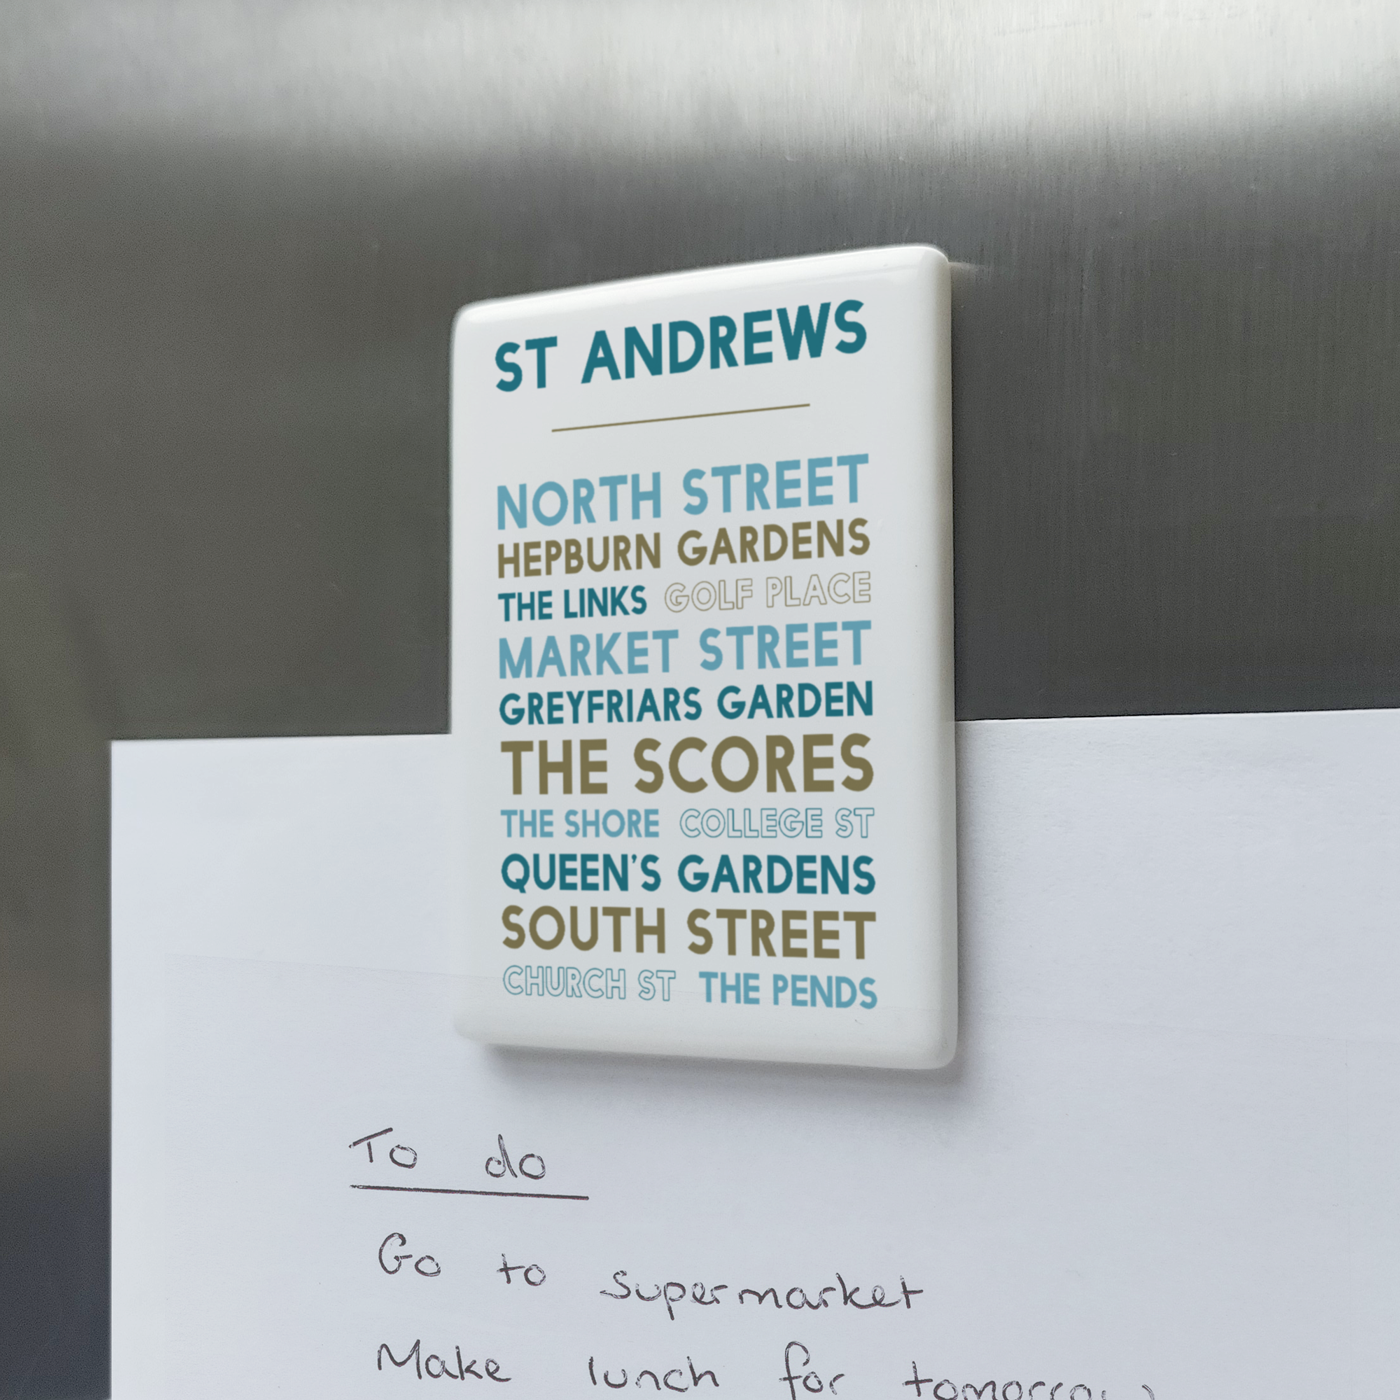 ST ANDREWS
NORTH STREET
HEPBURN GARDENS
THE LINKS GOLF PLACE
MARKET STREET
GREYFRIARS GARDEN
THE SCORES
THE SHORE COLLEGE ST
QUEEN'S GARDENS
SOUTH STREET
CHURCH ST THE PENDS
To do
Go to supermarket
Make lunch for tomorrow